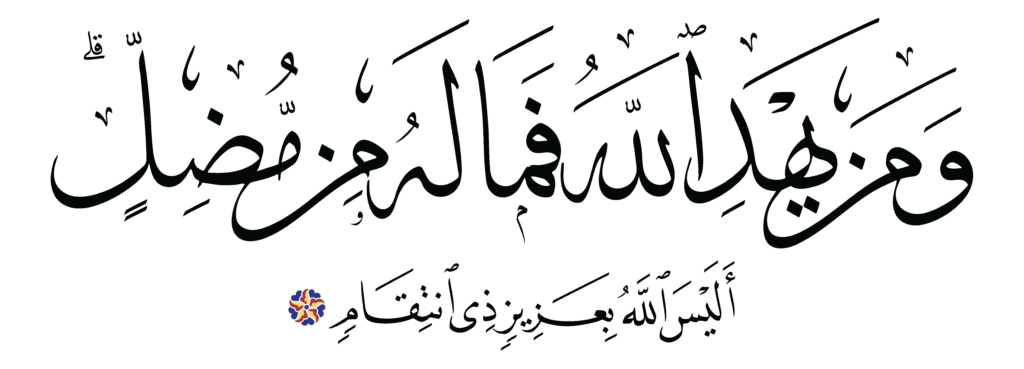 وَمَن يَهْدِ ٱللَّهُ فَمَا لَهُۥ مِن مُّضِلٍّ ۗ
أَلَيْسَ ٱللَّهُ بِعَزِيزٍ ذِى ٱنتِقَامٍ